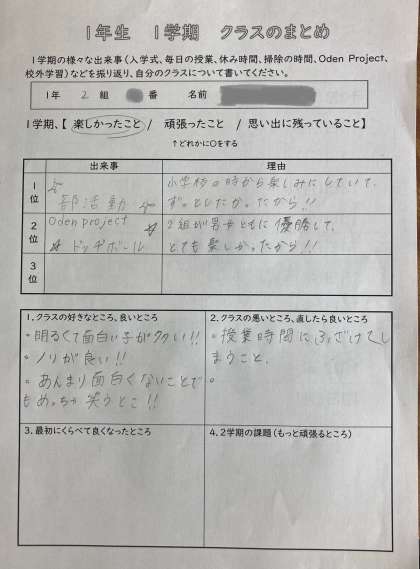 1年生 1学期 クラスのまとめ
1学期の様々な出来事(入学式、毎日の授業、休み時間、掃除の時間、Oden Project、
校外学習)などを振り返り、自分のクラスについて書いてください。
1年 2 組 番 名前
1学期、【 楽しかったこと / 頑張ったこと / 思い出に残っていること】
↑どれかに○をする
出来事 理由
1位 部活動 小学校の時から楽しみにしていて、
ずっとしたかったから!!
2位 Oden project ☆ 2組が男女ともに優勝して、
☆ ドッヂボール とても楽しかったから!!
3位
1、クラスの好きなところ、良いところ
・明るくて面白い子が多い!!
・ノリが良い!!
・あんまり面白くないことで
もめっちゃ笑うとこ!!
2、クラスの悪いところ、直したら良いところ
・授業時間にふざけてし
まうこと、
・
3、最初にくらべて良くなったところ
4、2学期の課題(もっと頑張るところ)